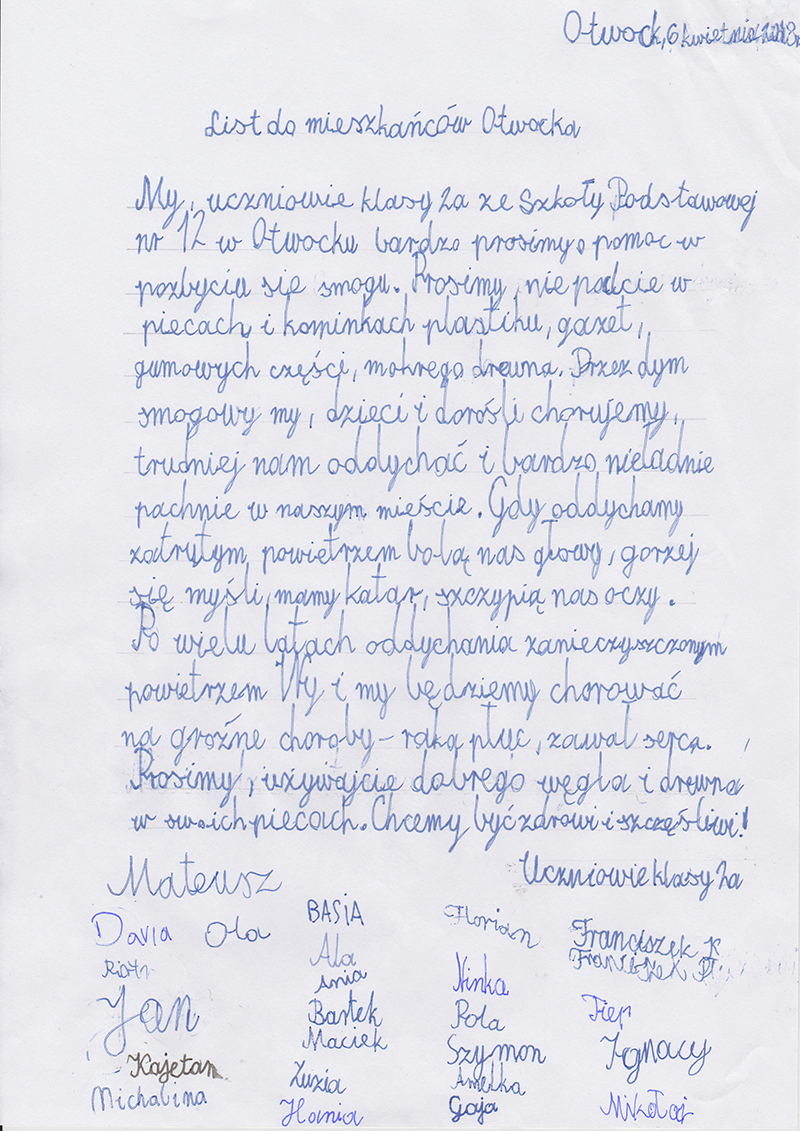 Otwock, 6 kwietnia
List do mieszkańców Otwocka
My, uczniowie klasy 2a ze Szkoły Podstawowej
nr 12 w Otwocku bardzo prosimy o pomoc w
pozbyciu się smogu. Prosimy, nie palcie w
piecach i kominkach plastiku, gazet,
gumowych części, mokrego drewna. Przez dym
smogowy my, dzieci i dorośli chorujemy,
trudniej nam oddychać i bardzo nieładnie
pachnie w naszym mieście. Gdy oddychamy
zatrutym powietrzem bolą nas głowy, gorzej
się myśli, mamy katar, szczypią nas oczy.
Po wielu latach oddychania zanieczyszczonym
powietrzem Wy i my będziemy chorować
na groźne choroby - raka płuc, zawał serca.
Prosimy, używajcie dobrego węgla i drewna
w swoich piecach. Chcemy być zdrowi i szczęśliwi!
Uczniowie klasy 2a
Mateusz
Daria Ola BASIA Florian Franciszek K
Piotr Ala Franciszek Pt.
Ania Ninka
Jan Bartek Pola
Maciek Szymon Ignacy
Kajetan Zuzia Amelka
Michalina Hania Gaja Mikołaj